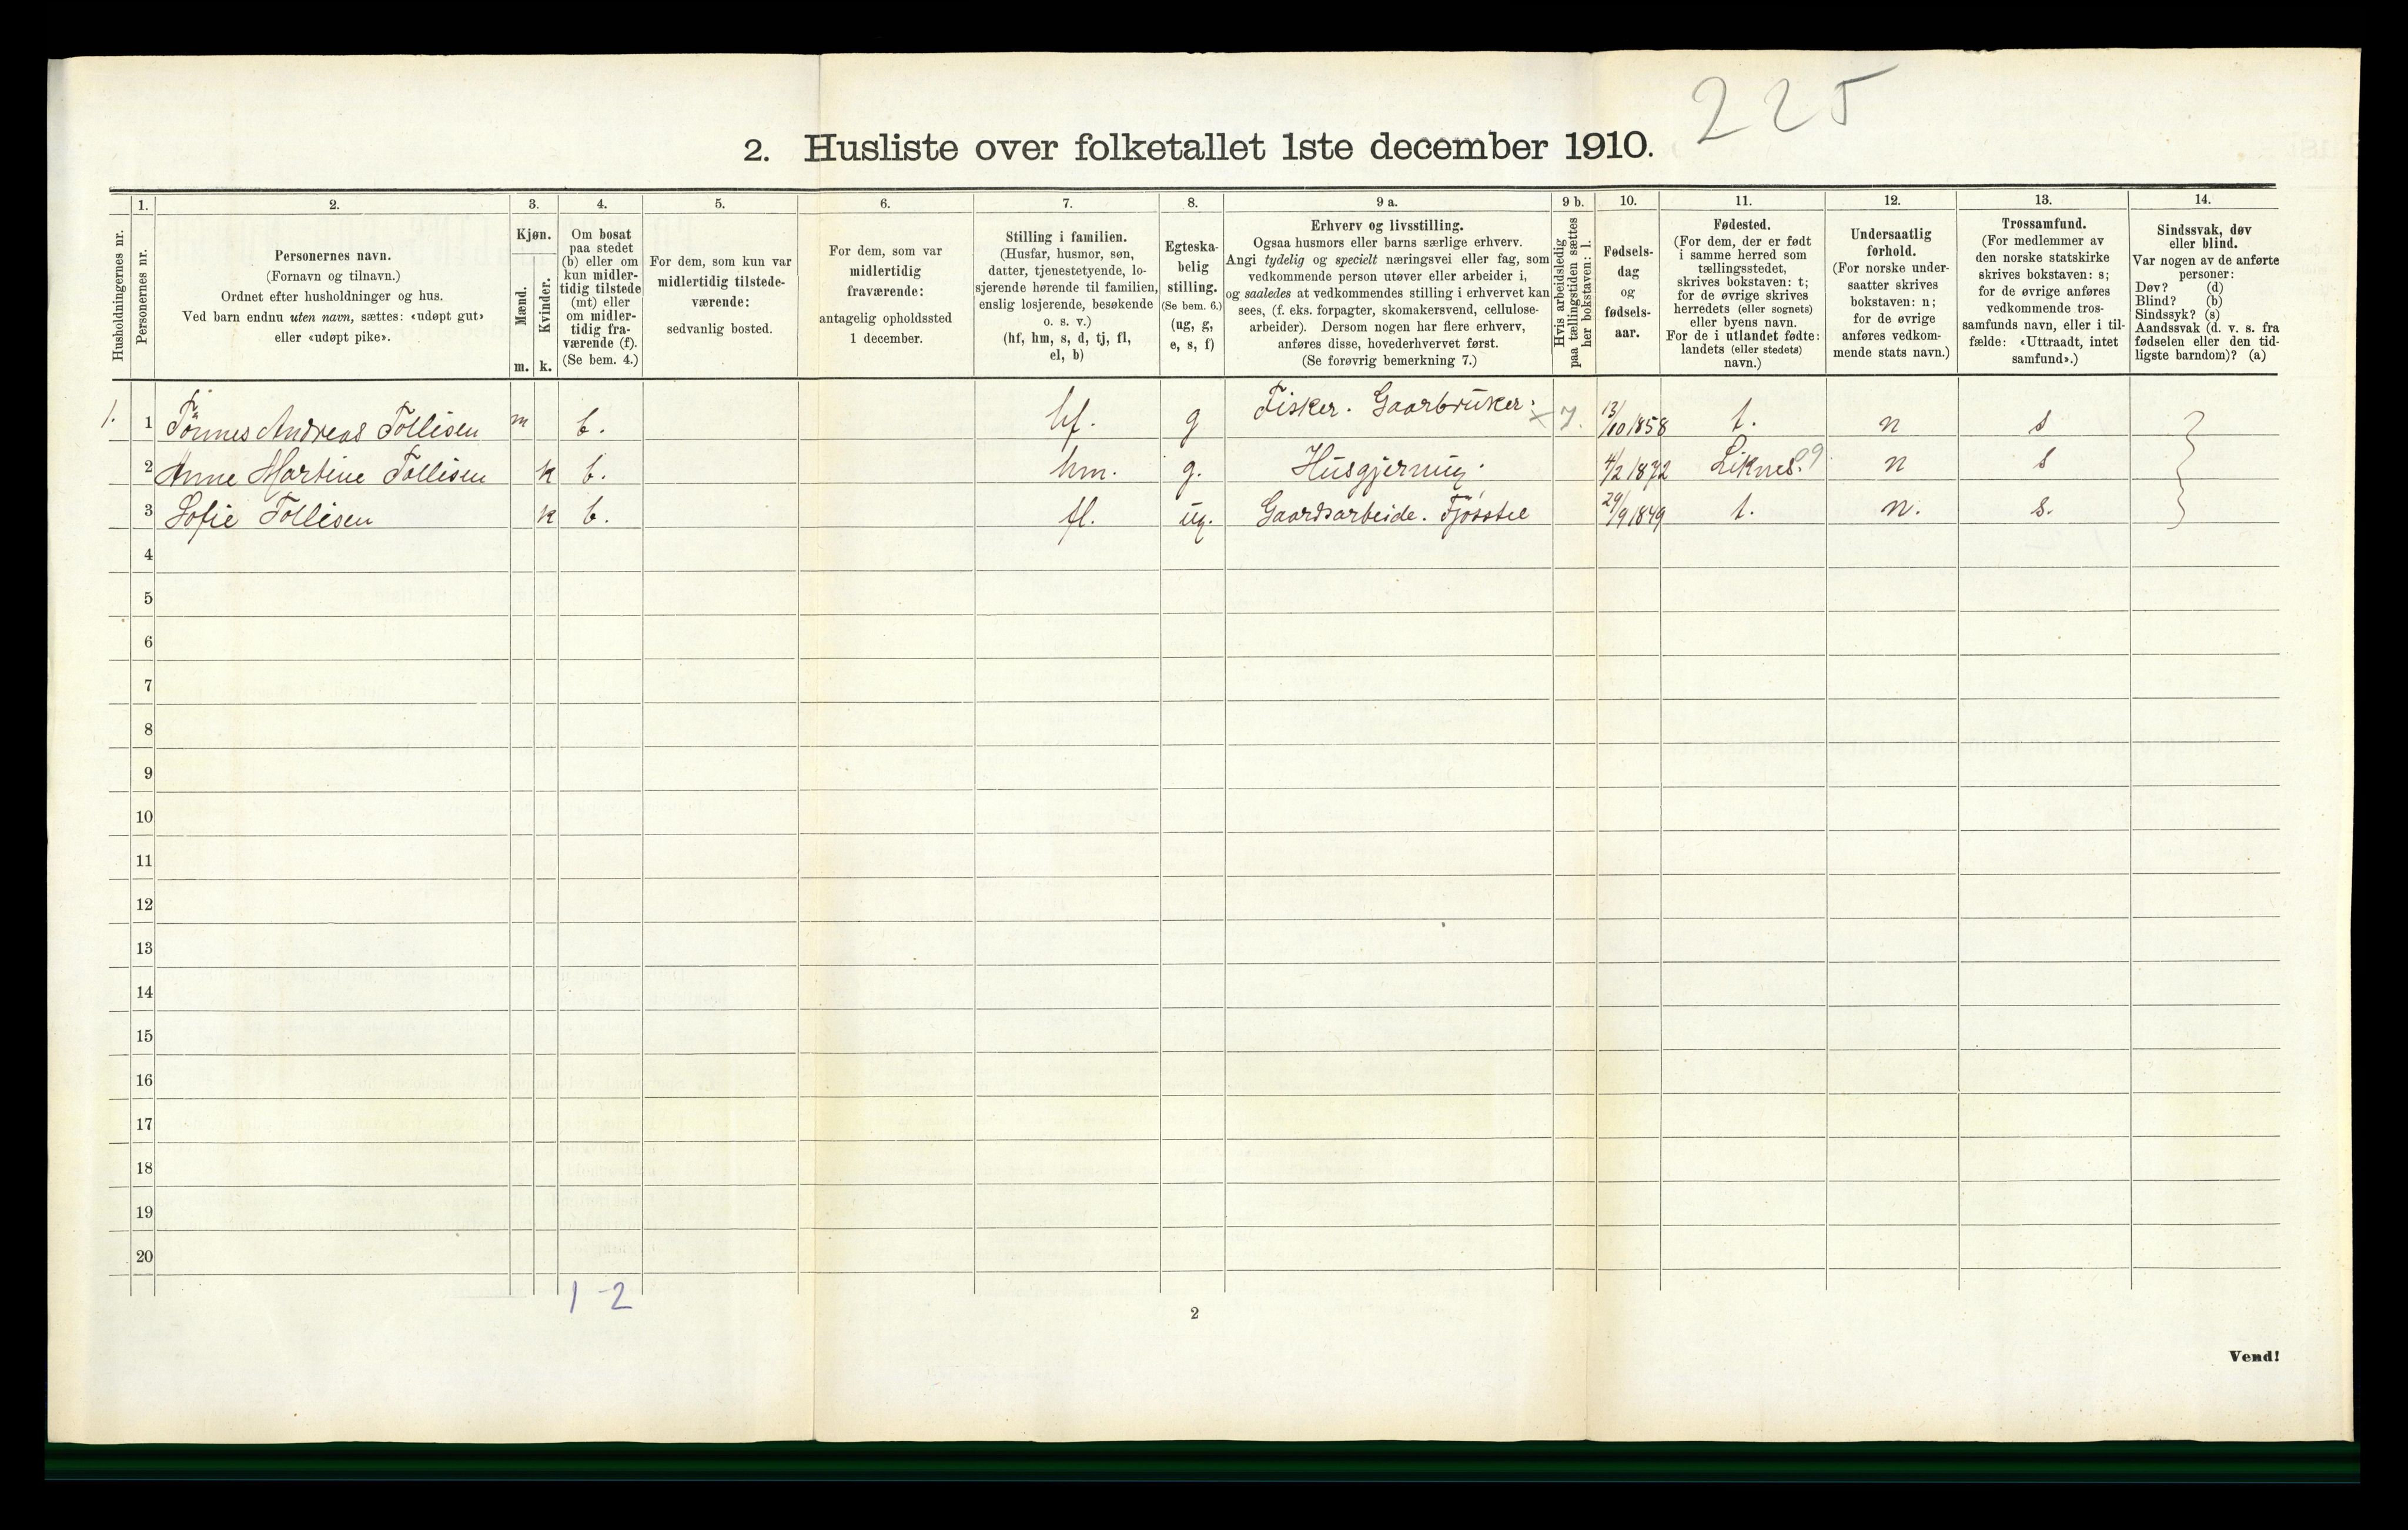 225
2. Husliste over folketallet 1ste december 1910.
Husholdningernes nr.
1.
Personernes nr.
2.
Personernes navn.
(Fornavn og tilnavn.)
Ordnet efter husholdninger og hus.
Ved barn endnu uten navn, sættes: «udøpt gut»
eller «udøpt pike».
3.
Kjøn.
Mænd.
Kvinder.
m. k.
4.
Om bosat
paa stedet
(b) eller om
kun midler-
tidig tilstede
(mt) eller
om midler-
tidig fra-
værende (f).
(Se bem. 4.)
5.
For dem, som kun var
midlertidig tilstede-
værende:
sedvanlig bosted.
6.
For dem, som var
midlertidig
fraværende:
antagelig opholdssted
1 december.
7.
Stilling i familien.
(Husfar, husmor, søn,
datter, tjenestetyende, lo-
sjerende hørende til familien,
enslig losjerende, besøkende
o. s. v.)
(hf, hm, s, d, tj, fl,
el, b)
8.
Egteska-
belig
stilling.
(Se bem. 6.)
(ug, g,
e, s, f)
9 a.
Erhverv og livsstilling.
Ogsaa husmors eller barns særlige erhverv.
Angi tydelig og specielt næringsvei eller fag, som
vedkommende person utøver eller arbeider i,
og saaledes at vedkommendes stilling i erhvervet kan
sees, (f. eks. forpagter, skomakersvend, cellulose-
arbeider). Dersom nogen har flere erhverv,
anføres disse, hovederhvervet først.
(Se forøvrig bemerkning 7.)
9 b.
Hvis arbeidsledig
paa tællingstiden sættes
her bokstaven: l.
10.
Fødsels-
dag
og
fødsels-
aar.
11.
Fødested.
(For dem, der er født
i samme herred som
tællingsstedet,
skrives bokstaven: t;
for de øvrige skrives
herredets (eller sognets)
eller byens navn.
For de i utlandet fødte:
landets (eller stedets)
navn.)
12.
Undersaatlig
forhold.
(For norske under-
saatter skrives
bokstaven: n;
for de øvrige
anføres vedkom-
mende stats navn.)
13.
Trossamfund.
(For medlemmer av
den norske statskirke
skrives bokstaven: s;
for de øvrige anføres
vedkommende tros-
samfunds navn, eller i til-
fælde: «Uttraadt, intet
samfund».)
14.
Sindssvak, døv
eller blind.
Var nogen av de anførte
personer:
Døv? (d)
Blind? (b)
Sindssyk? (s)
Aandssvak (d. v. s. fra
fødselen eller den tid-
ligste barndom)? (a)
1. 1 Tönnes Andreas Tollisen m b. hf. g Fisker. Gaarbruker. 13/10 1858 t. n s
2 Anne Martine Tollisen k b. hm. g. Husgjerning. 4/2 1872 Liknes. n s
3 Sofie Tollisen k b. fl. ug. Gaardsarbeide. Fjösstel 29/9 1849 t. n. s.
4
5
6
7
8
9
10
11
12
13
14
15
16
17
18
19
20
1-2
2
Vend!